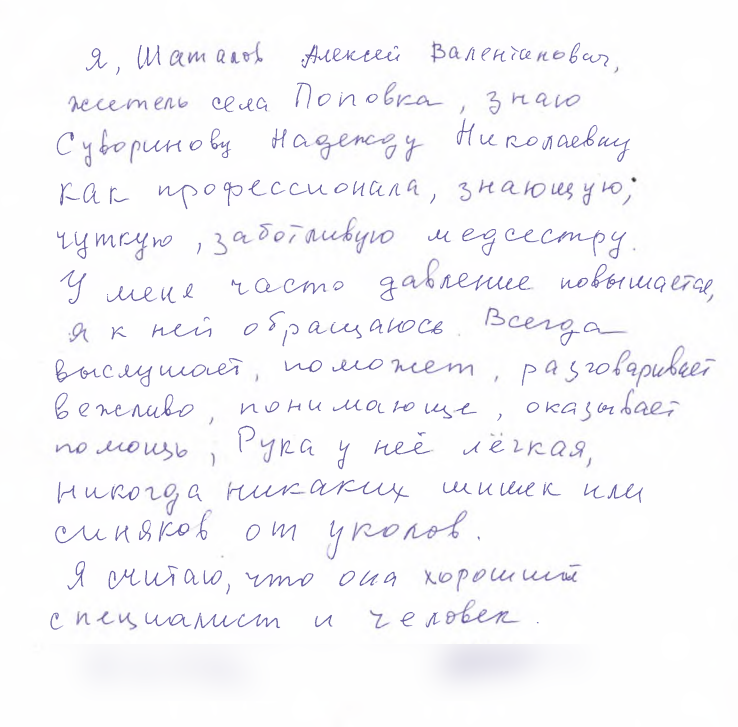 Я, Шаталов Алексей Валентинович,
житель села Поповка, знаю
Суворинову Надежду Николаевну
как профессионала, знающую,
чуткую, заботливую медсестру.
У меня часто давление повышается,
я к ней обращаюсь. Всегда
выслушает, поможет, разговаривает
вежливо, понимающе, оказывает
помощь, Рука у неё лёгкая,
никогда никаких шишек или
синяков от уколов.
Я считаю, что она хороший
специалист и человек.